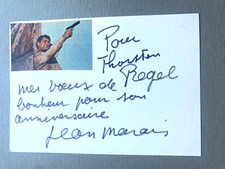 Pour
Thorsten
Regel
mes vœux de
bonheur pour son
anniversaire
Jean Marais